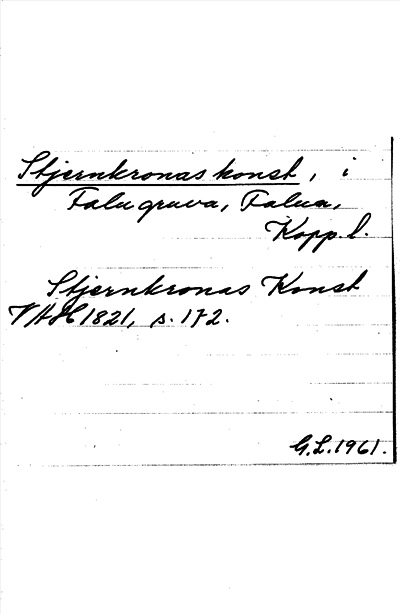 Stjernkronas konst, i
Falu gruva, Falun,
Kopp. l.
Stjernkronas Konst
VAH 1821, s. 172.
G.L. 1961.